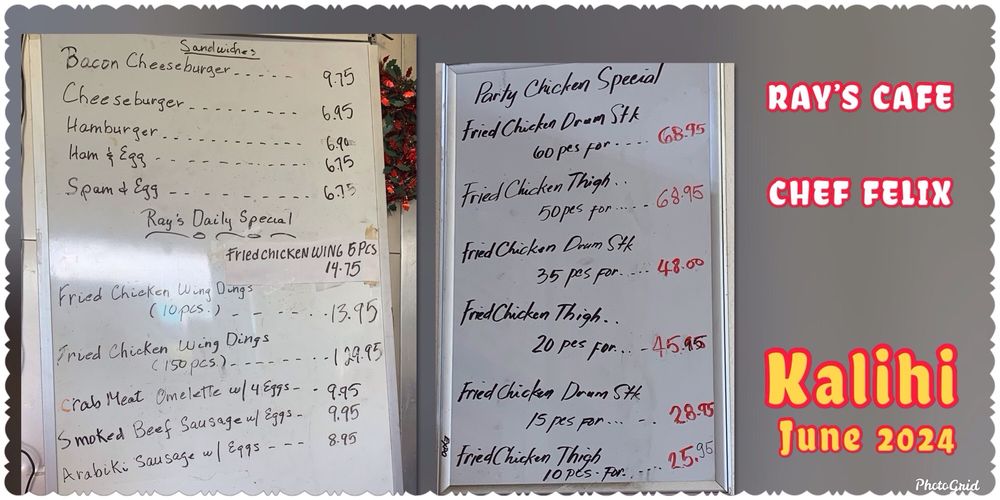 Sandwiches
Bacon Cheeseburger----- 9.75
Cheeseburger-------- 6.95
Hamburger--------- 6.90
Ham & Egg --------- 6.75
Spam & Egg --------- 6.75
Ray's Daily Special
Fried chicken WING 5 PCS
14.75
Fried Chicken Wing Dings
(10 pcs.) ------ 13.95
Fried Chicken Wing Dings
(150 pcs.)------- 129.95
Crab Meat Omelette w/ 4 Eggs-- 9.95
Smoked Beef Sausage w/ Eggs- 9.95
Arabiki Sausage w/ Eggs --- 8.95
Party Chicken Special
Fried Chicken Drum Stk
60 pcs for.... 68.95
Fried Chicken Thigh..
50 pcs for..... 68.95
Fried Chicken Drum Stk
35 pcs for.... 48.00
Fried Chicken Thigh..
20 pcs for... 45.95
Fried Chicken Drum Stk
15 pcs for... 28.95
Fried Chicken Thigh
10 pcs. for..... 25.95
EXPO
RAY'S CAFE
CHEF FELIX
Kalihi
June 2024
PhotoGrid